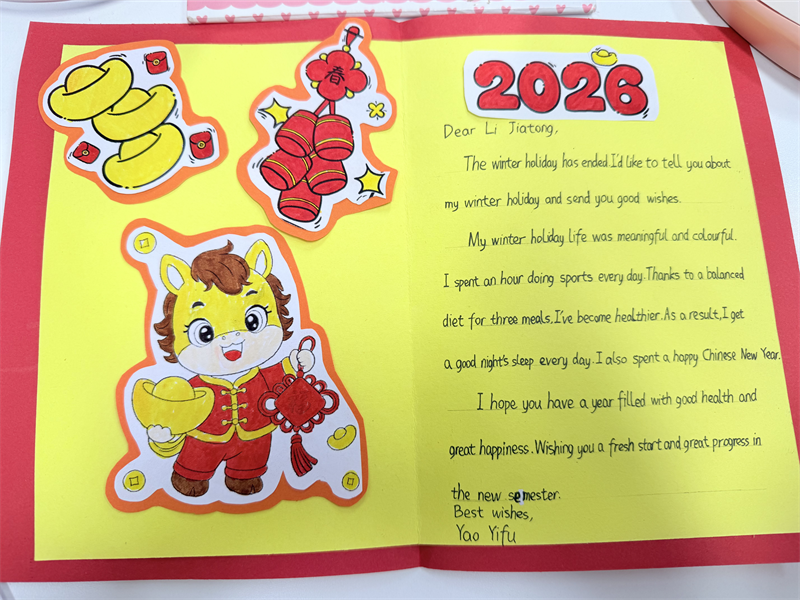 春
2026
Dear Li Jiatong,
The winter holiday has ended. I'd like to tell you about
my winter holiday and send you good wishes.
My winter holiday life was meaningful and colourful.
I spent an hour doing sports every day. Thanks to a balanced
diet for three meals, I've become healthier. As a result, I get
a good night's sleep every day. I also spent a happy Chinese New Year.
I hope you have a year filled with good health and
great happiness. Wishing you a fresh start and great progress in
the new semester.
Best wishes,
Yao Yifu